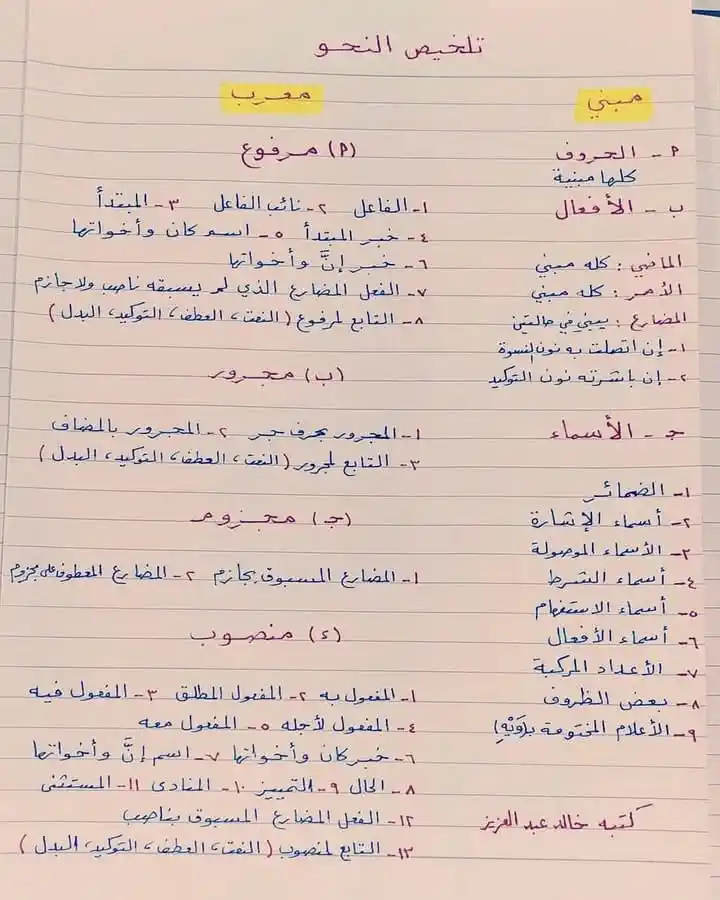 تلخيص النحو
مبني
أ - الحروف
كلها مبنية
ب - الأفعال
الماضي : كله مبني
الأمر : كله مبني
المضارع : يبنى في حالتين
١- إن اتصلت به نون النسوة
٢- إن باشرته نون التوكيد
جـ - الأسماء
١- الضمائر
٢- أسماء الإشارة
٣- الأسماء الموصولة
٤- أسماء الشرط
٥- أسماء الاستفهام
٦- أسماء الأفعال
٧- الأعداد المركبة
٨- بعض الظروف
٩- الأعلام المختومة بـ(وَيْهِ)
كتبه خالد عبد العزيز
معرب
(أ) مرفوع
١- الفاعل ٢- نائب الفاعل ٣- المبتدأ
٤- خبر المبتدأ ٥- اسم كان وأخواتها
٦- خبر إنَّ وأخواتها
٧- الفعل المضارع الذي لم يسبقه ناصب ولا جازم
٨- التابع لمرفوع (النعت، العطف، التوكيد، البدل)
(ب) مجرور
١- المجرور بحرف جر ٢- المجرور بالمضاف
٣- التابع لمجرور (النعت، العطف، التوكيد، البدل)
(جـ) مجزوم
١- المضارع المسبوق بجازم ٢- المضارع المعطوف على مجزوم
(د) منصوب
١- المفعول به ٢- المفعول المطلق ٣- المفعول فيه
٤- المفعول لأجله ٥- المفعول معه
٦- خبر كان وأخواتها ٧- اسم إنَّ وأخواتها
٨- الحال ٩- التمييز ١٠- المنادى ١١- المستثنى
١٢- الفعل المضارع المسبوق بناصب
١٣- التابع لمنصوب (النعت، العطف، التوكيد، البدل)